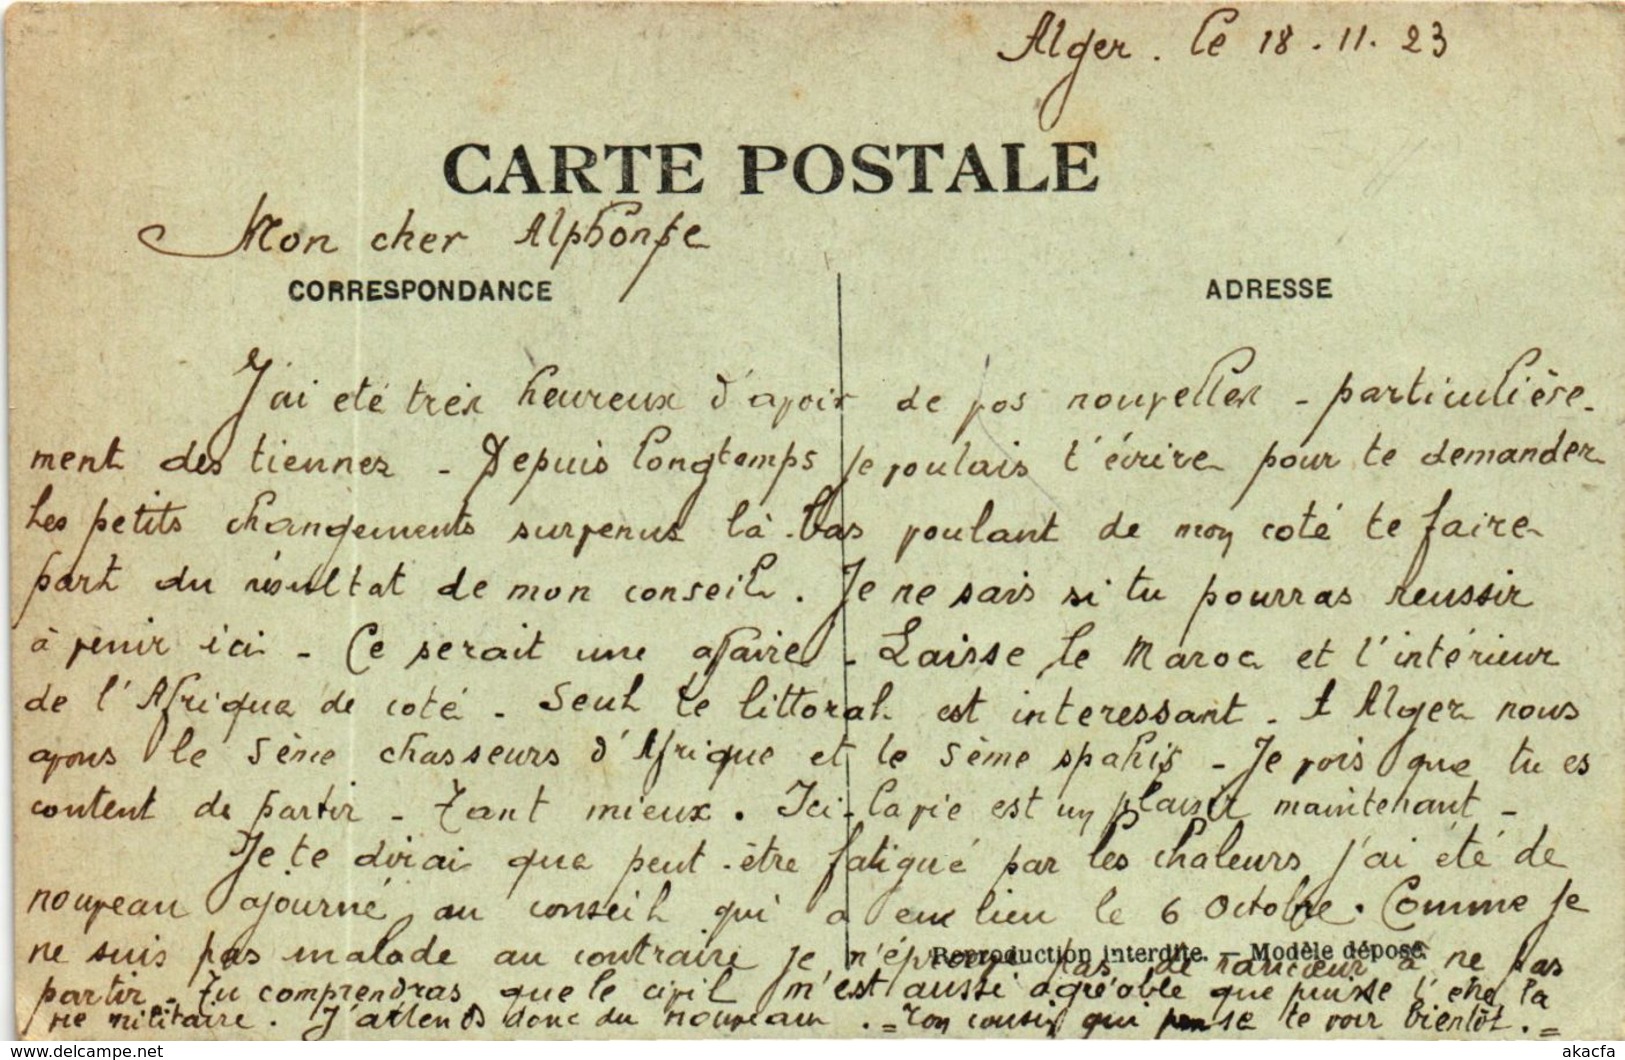 Alger. le 18.11.23
CARTE POSTALE
Mon cher Alphonse
CORRESPONDANCE
ADRESSE
J'ai été très heureux d'avoir de vos nouvelles - particulière-
ment des tiennes - Depuis longtemps je voulais t'écrire pour te demander
les petits changements survenus là-bas voulant de mon coté te faire
part du résultat de mon conseil. Je ne sais si tu pourras reussir
à venir ici - Ce serait une afaire - Laisse le Maroc et l'intérieur
de l'Afrique de coté - Seul le littoral est interessant - A Alger nous
avons le 5ème chasseurs d'Afrique et le 5ème spahis - Je vois que tu es
content de partir - Tant mieux. Ici la vie est un plaisir maintenant -
Je te dirai que peut-être fatigué par les chaleurs j'ai été de
nouveau ajourné, au conseil qui a eu lieu le 6 Octobre. Comme je
ne suis pas malade au contraire je n'éprouve pas de rancœur à ne pas
Reproduction interdite. — Modèle déposé.
partir - Tu comprendras que le civil m'est aussi agréable que puisse l'être la
vie militaire. J'attends donc du nouveau. = Ton cousin qui pense te voir bientôt. =
akpool.co.uk
akacfa